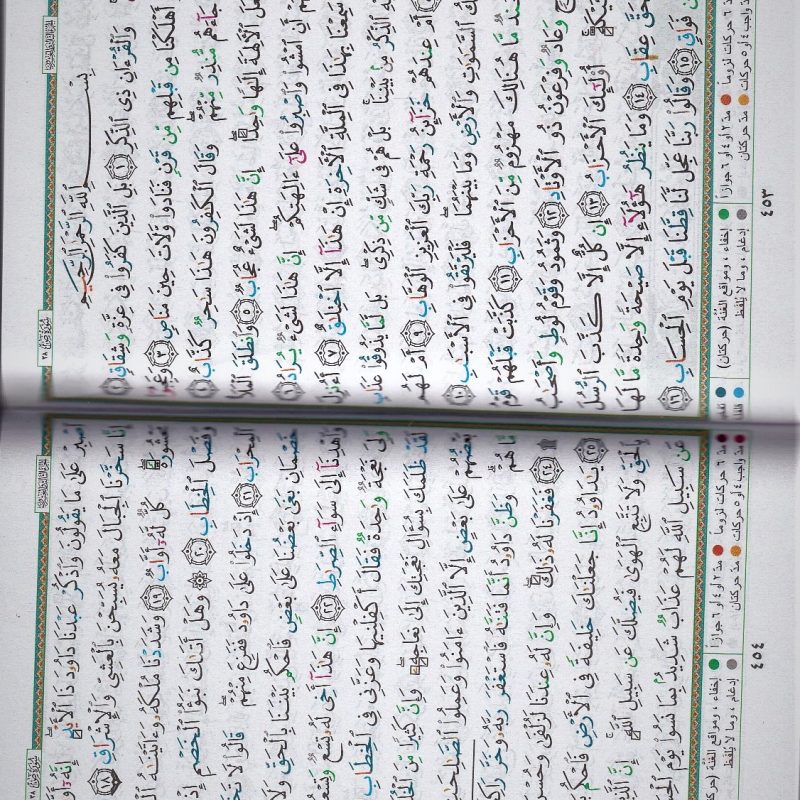 سورة ص ٣٨
بِسْمِ ٱللَّهِ ٱلرَّحْمَٰنِ ٱلرَّحِيمِ
وَٱلْقُرْءَانِ ذِى ٱلذِّكْرِ ١ بَلِ ٱلَّذِينَ كَفَرُوا۟ فِى عِزَّةٍ وَشِقَاقٍ ٢
أَهْلَكْنَا مِن قَبْلِهِم مِّن قَرْنٍ فَنَادَوا۟ وَّلَاتَ حِينَ مَنَاصٍ ٣
جَآءَهُم مُّنذِرٌ مِّنْهُمْ وَقَالَ ٱلْكَٰفِرُونَ هَٰذَا سَٰحِرٌ كَذَّابٌ ٤
ٱلْءَالِهَةَ إِلَٰهًا وَٰحِدًا إِنَّ هَٰذَا لَشَىْءٌ عُجَابٌ ٥ وَٱنطَلَقَ ٱلْمَلَأُ
أَنِ ٱمْشُوا۟ وَٱصْبِرُوا۟ عَلَىٰٓ ءَالِهَتِكُمْ إِنَّ هَٰذَا لَشَىْءٌ يُرَادُ ٦
سَمِعْنَا بِهَٰذَا فِى ٱلْمِلَّةِ ٱلْءَاخِرَةِ إِنْ هَٰذَآ إِلَّا ٱخْتِلَٰقٌ ٧ أَءُنزِلَ
ٱلذِّكْرُ مِنۢ بَيْنِنَا بَلْ هُمْ فِى شَكٍّ مِّن ذِكْرِى بَل لَّمَّا يَذُوقُوا۟ عَذَابِ
أَمْ عِندَهُمْ خَزَآئِنُ رَحْمَةِ رَبِّكَ ٱلْعَزِيزِ ٱلْوَهَّابِ ٩ أَمْ لَهُم
ٱلسَّمَٰوَٰتِ وَٱلْأَرْضِ وَمَا بَيْنَهُمَا فَلْيَرْتَقُوا۟ فِى ٱلْأَسْبَٰبِ ١٠
جُندٌ مَّا هُنَالِكَ مَهْزُومٌ مِّنَ ٱلْأَحْزَابِ ١١ كَذَّبَتْ قَبْلَهُمْ قَوْمُ
وَعَادٌ وَفِرْعَوْنُ ذُو ٱلْأَوْتَادِ ١٢ وَثَمُودُ وَقَوْمُ لُوطٍ وَأَصْحَٰبُ
أُو۟لَٰٓئِكَ ٱلْأَحْزَابُ ١٣ إِن كُلٌّ إِلَّا كَذَّبَ ٱلرُّسُلَ
فَحَقَّ عِقَابِ ١٤ وَمَا يَنظُرُ هَٰٓؤُلَآءِ إِلَّا صَيْحَةً وَٰحِدَةً مَّا لَهَا
فَوَاقٍ ١٥ وَقَالُوا۟ رَبَّنَا عَجِّل لَّنَا قِطَّنَا قَبْلَ يَوْمِ ٱلْحِسَابِ ١٦
مدّ ٦ حركات لزوماً مدّ ٢ أو ٤ أو ٦ جوازاً إخفاء، ومواقع الغُنّة (حركتان)
مدّ واجب ٤ أو ٥ حركات مدّ حركتان إدغام، وما لا يُلفظ
٤٥٣
سورة ص ٣٨
ٱصْبِرْ عَلَىٰ مَا يَقُولُونَ وَٱذْكُرْ عَبْدَنَا دَاوُۥدَ ذَا ٱلْأَيْدِ إِنَّهُۥٓ
إِنَّا سَخَّرْنَا ٱلْجِبَالَ مَعَهُۥ يُسَبِّحْنَ بِٱلْعَشِىِّ وَٱلْإِشْرَاقِ ١٨
مَحْشُورَةً كُلٌّ لَّهُۥٓ أَوَّابٌ ١٩ وَشَدَدْنَا مُلْكَهُۥ وَءَاتَيْنَٰهُ
وَفَصْلَ ٱلْخِطَابِ ٢٠ ۞ وَهَلْ أَتَىٰكَ نَبَؤُا۟ ٱلْخَصْمِ إِذْ
ٱلْمِحْرَابَ ٢١ إِذْ دَخَلُوا۟ عَلَىٰ دَاوُۥدَ فَفَزِعَ مِنْهُمْ قَالُوا۟ لَا
خَصْمَانِ بَغَىٰ بَعْضُنَا عَلَىٰ بَعْضٍ فَٱحْكُم بَيْنَنَا بِٱلْحَقِّ وَلَا
وَٱهْدِنَآ إِلَىٰ سَوَآءِ ٱلصِّرَٰطِ ٢٢ إِنَّ هَٰذَآ أَخِى لَهُۥ تِسْعٌ
وَلِىَ نَعْجَةٌ وَٰحِدَةٌ فَقَالَ أَكْفِلْنِيهَا وَعَزَّنِى فِى ٱلْخِطَابِ
لَقَدْ ظَلَمَكَ بِسُؤَالِ نَعْجَتِكَ إِلَىٰ نِعَاجِهِۦ وَإِنَّ كَثِيرًا مِّنَ
بَعْضُهُمْ عَلَىٰ بَعْضٍ إِلَّا ٱلَّذِينَ ءَامَنُوا۟ وَعَمِلُوا۟ ٱلصَّٰلِحَٰتِ
هُمْ وَظَنَّ دَاوُۥدُ أَنَّمَا فَتَنَّٰهُ فَٱسْتَغْفَرَ رَبَّهُۥ وَخَرَّ
٢٤ فَغَفَرْنَا لَهُۥ ذَٰلِكَ وَإِنَّ لَهُۥ عِندَنَا لَزُلْفَىٰ وَحُسْنَ
٢٥ يَٰدَاوُۥدُ إِنَّا جَعَلْنَٰكَ خَلِيفَةً فِى ٱلْأَرْضِ فَٱحْكُم
بِٱلْحَقِّ وَلَا تَتَّبِعِ ٱلْهَوَىٰ فَيُضِلَّكَ عَن سَبِيلِ ٱللَّهِ إِنَّ ٱلَّذِينَ
عَن سَبِيلِ ٱللَّهِ لَهُمْ عَذَابٌ شَدِيدٌۢ بِمَا نَسُوا۟ يَوْمَ
مدّ ٦ حركات لزوماً مدّ ٢ أو ٤ أو ٦ جوازاً إخفاء، ومواقع الغُنّة
مدّ واجب ٤ أو ٥ حركات مدّ حركتان إدغام، وما لا يُلفظ
٤٥٤